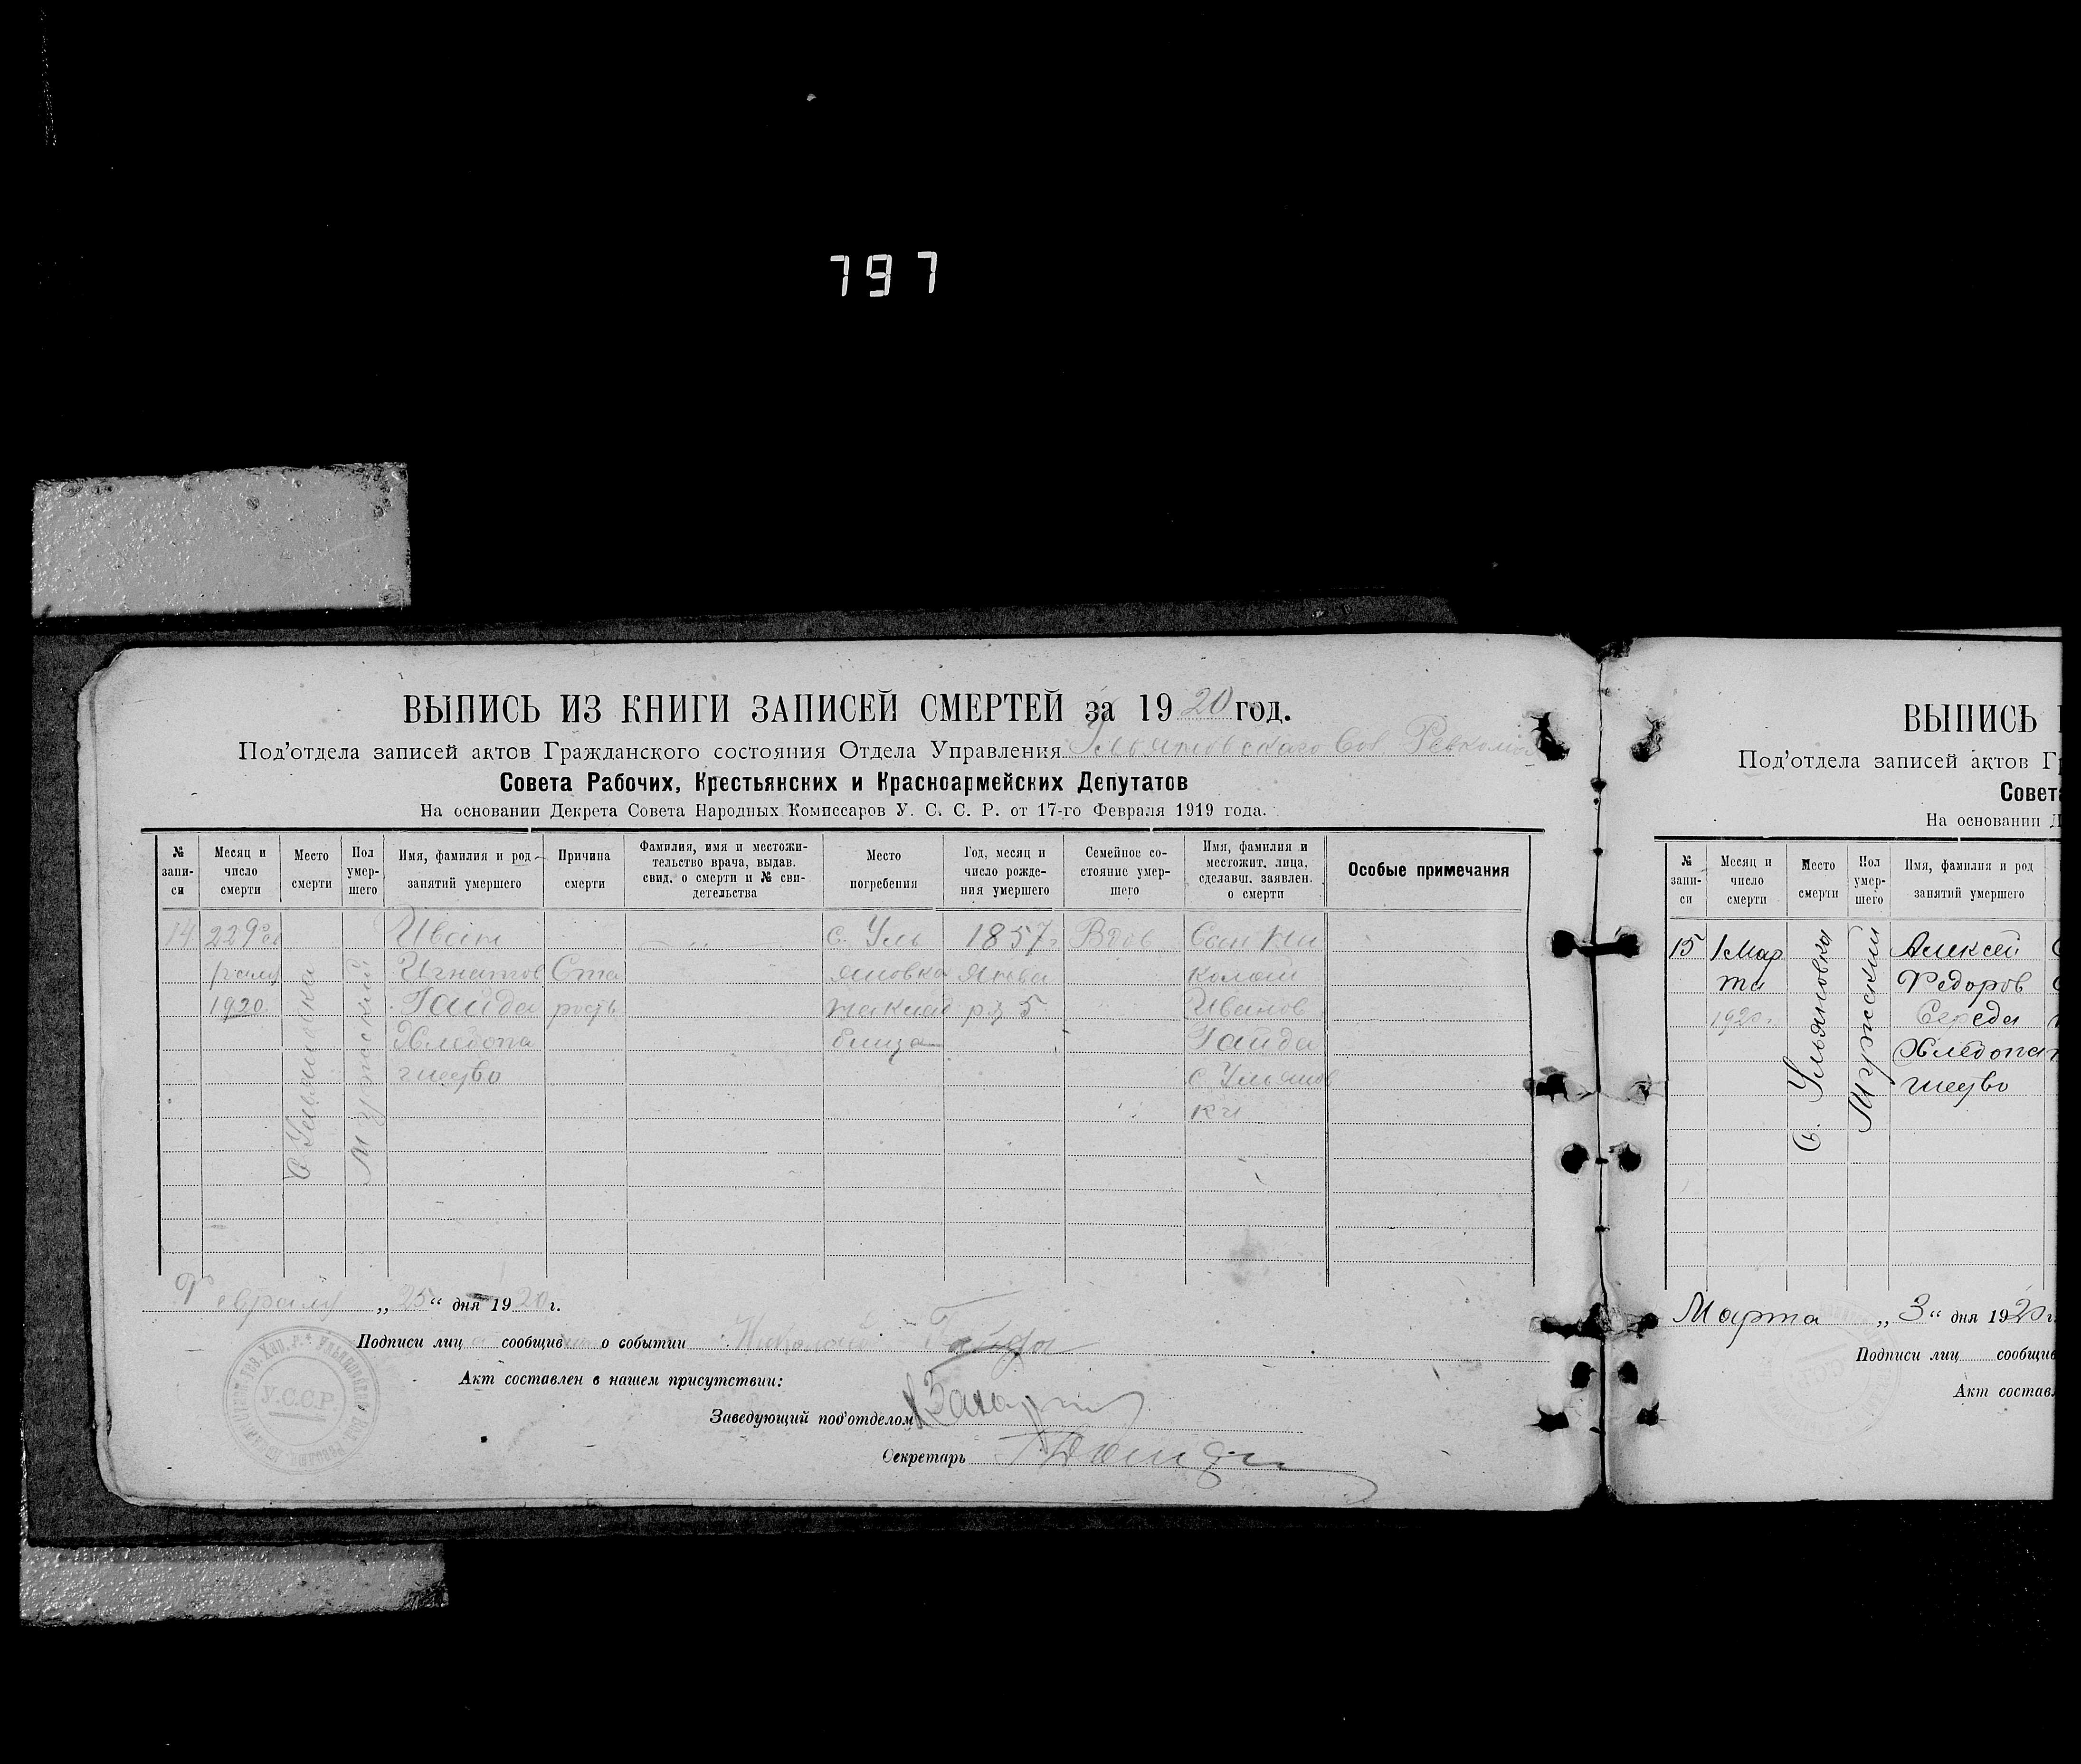 797
ВЫПИСЬ ИЗ КНИГИ ЗАПИСЕЙ СМЕРТЕЙ за 1920 год.
Под'отдела записей актов Гражданского состояния Отдела Управления Ульяновскаго Вол. Ревкома
Совета Рабочих, Крестьянских и Красноармейских Депутатов
На основании Декрета Совета Народных Комиссаров У. С. С. Р. от 17-го Февраля 1919 года.
№ запи-си
Месяц и число смерти
Место смерти
Пол умер-шего
Имя, фамилия и род занятий умершего
Причина смерти
Фамилия, имя и местожи-тельство врача, выдав. свид. о смерти и № сви-детельства
Место погребения
Год, месяц и число рожде-ния умершего
Семейное со-стояние умер-шего
Имя, фамилия и местожит. лица, сделавш. заявлен. о смерти
Особые примечания
14
22 Фев
раля
1920
с. Ульяновка
Мужеский
Иван
Игнатов
Гайда
Хлебопа
шество
Ста
рость
с. Уль
яновка
на клад
бище
1857
Января 5
Сын Ни
колай
Иванов
Гайда
с. Ульянов
ки
Февраля „25“ дня 1920 г.
Подписи лиц а сообщив о событии Николай Гайда
Акт составлен в нашем присутствии:
Заведующий под'отделом
Секретарь
У.С.С.Р.
ВЫПИСЬ
Под'отдела записей актов Г
Совета
На основании Д
№ запи-си
Месяц и число смерти
Место смерти
Пол умер-шего
Имя, фамилия и род занятий умершего
15
1 Мар
та
1920 г.
с. Ульяновка
Мужеский
Алексей
Федоров
Середа
Хлебопа
шество
Марта „3“ дня 1920 г.
Подписи лиц сообщив
Акт составл